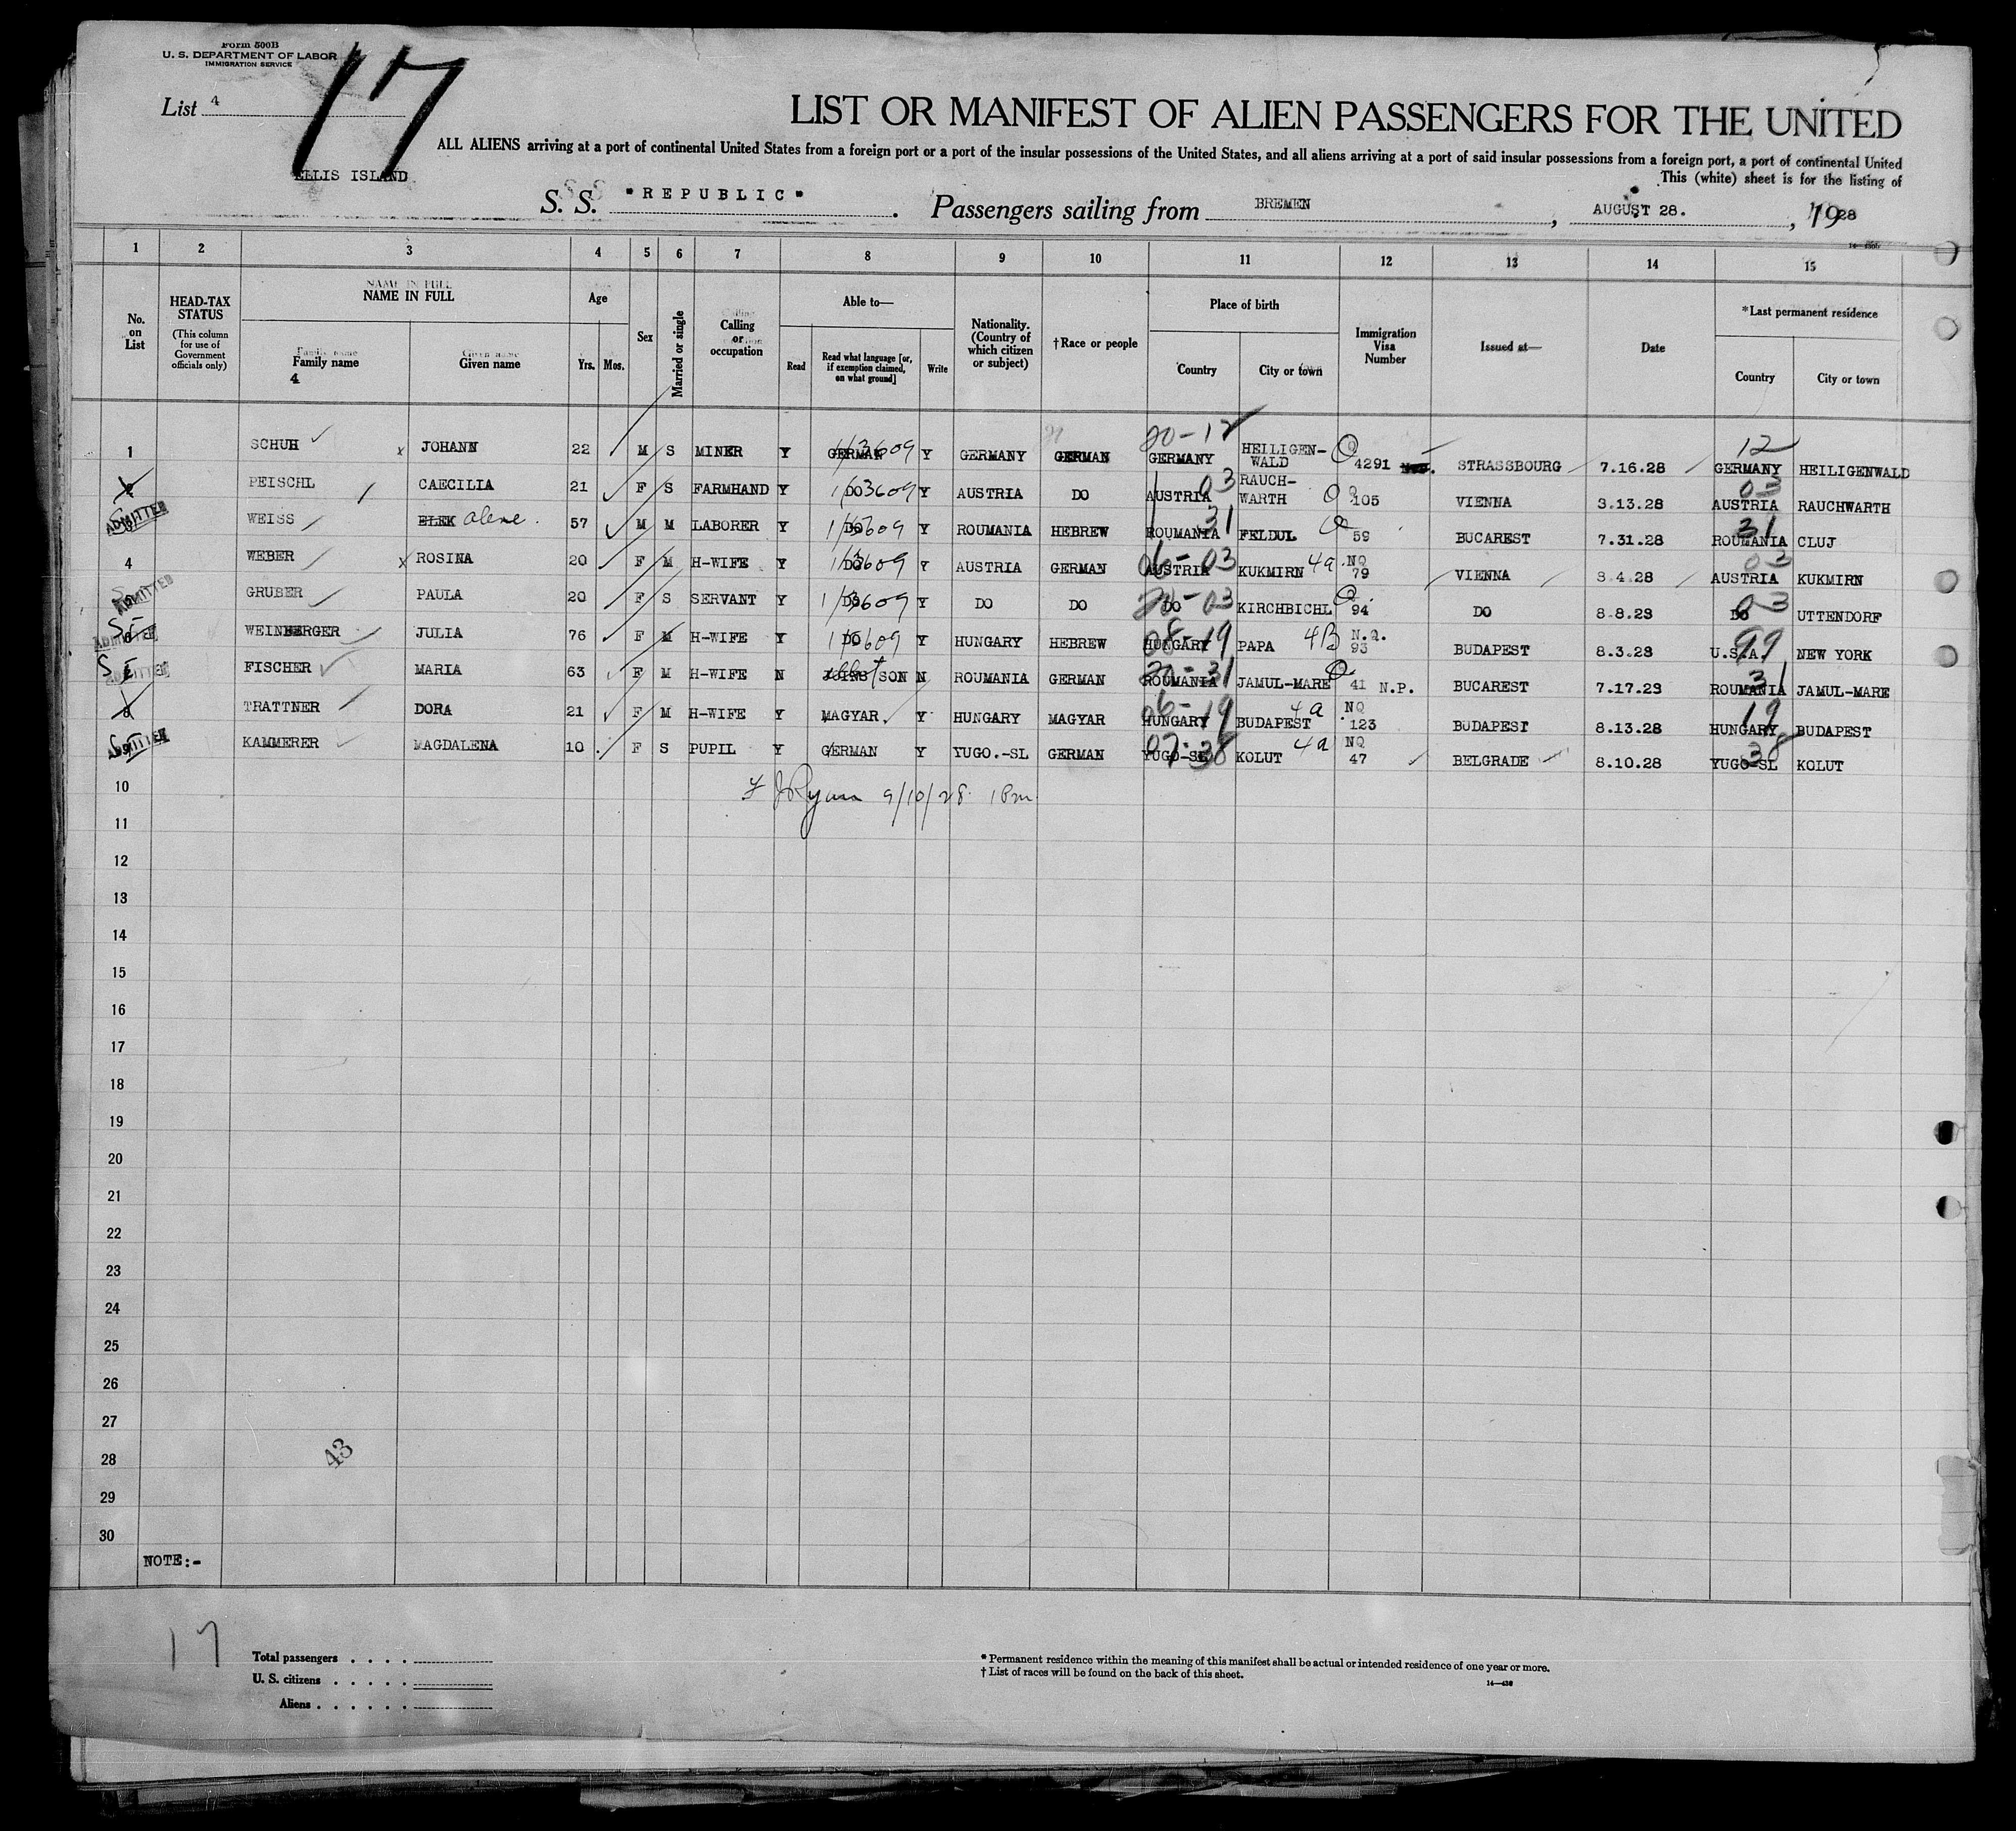 Form 500B
U. S. DEPARTMENT OF LABOR
IMMIGRATION SERVICE
17
List 4
LIST OR MANIFEST OF ALIEN PASSENGERS FOR THE UNITED
ALL ALIENS arriving at a port of continental United States from a foreign port or a port of the insular possessions of the United States, and all aliens arriving at a port of said insular possessions from a foreign port, a port of continental United
ELLIS ISLAND
This (white) sheet is for the listing of
S. S. "REPUBLIC". Passengers sailing from BREMEN, AUGUST 28., 1928
1 2 3 4 5 6 7 8 9 10 11 12 13 14 15
No. on List
HEAD-TAX STATUS
(This column for use of Government officials only)
NAME IN FULL
Family name
4
Given name
Age
Yrs. Mos.
Sex
Married or single
Calling or occupation
Able to—
Read
Read what language [or, if exemption claimed, on what ground]
Write
Nationality. (Country of which citizen or subject)
†Race or people
Place of birth
Country
City or town
Immigration Visa Number
Issued at—
Date
*Last permanent residence
Country
City or town
1 SCHUH x JOHANN 22 M S MINER Y GERMAN 113609 Y GERMANY GERMAN GERMANY 20-12 HEILIGEN-WALD Q 4291 STRASSBOURG 7.16.28 GERMANY 12 HEILIGENWALD
2 PEISCHL CAECILIA 21 F S FARMHAND Y DO 113609 Y AUSTRIA DO AUSTRIA 03 RAUCH-WARTH Q 105 VIENNA 3.13.28 AUSTRIA 03 RAUCHWARTH
ADMITTED WEISS ELEK 57 M M LABORER Y DO Y ROUMANIA HEBREW ROUMANIA 31 FELDUL Q 59 BUCAREST 7.31.28 ROUMANIA 31 CLUJ
4 WEBER x ROSINA 20 F M H-WIFE Y DO 113609 Y AUSTRIA GERMAN AUSTRIA 06-03 KUKMIRN 4a NQ 79 VIENNA 8.4.28 AUSTRIA 03 KUKMIRN
ADMITTED GRUBER PAULA 20 F S SERVANT Y DO 113609 Y DO DO DO 20-03 KIRCHBICHL Q 94 DO 8.8.28 DO 03 UTTENDORF
SI ADMITTED WEINBERGER JULIA 76 F M H-WIFE Y DO Y HUNGARY HEBREW HUNGARY 08-19 PAPA 4B N.Q. 93 BUDAPEST 8.3.28 U.S.A. 99 NEW YORK
SI ADMITTED FISCHER MARIA 63 F M H-WIFE N SON N ROUMANIA GERMAN ROUMANIA 20-31 JAMUL-MARE Q 41 N.P. BUCAREST 7.17.28 ROUMANIA 31 JAMUL-MARE
8 TRATTNER DORA 21 F M H-WIFE Y MAGYAR Y HUNGARY MAGYAR HUNGARY 06-19 BUDAPEST 4a NQ 123 BUDAPEST 8.13.28 HUNGARY 19 BUDAPEST
SI ADMITTED KAMMERER MAGDALENA 10 F S PUPIL Y GERMAN Y YUGO.-SL GERMAN YUGO-SL 07-38 KOLUT 4a NQ 47 BELGRADE 8.10.28 YUGO-SL 38 KOLUT
10 JRyan 9/10/28 1 Pm
11
12
13
14
15
16
17
18
19
20
21
22
23
24
25
26
27
28
43
29
30
NOTE:-
17
Total passengers . . . .
U. S. citizens . . . . .
Aliens . . . . . .
* Permanent residence within the meaning of this manifest shall be actual or intended residence of one year or more.
† List of races will be found on the back of this sheet.
14—430